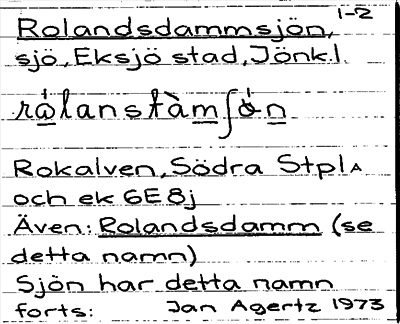 1-2
Rolandsdammsjön,
sjö, Eksjö stad, Jönk.l.
rå̀lanstàmʃö̀n
Rokalven, Södra Stpl A
och ek 6E8j
Även: Rolandsdamm (se
detta namn)
Sjön har detta namn
forts: Jan Agertz 1973